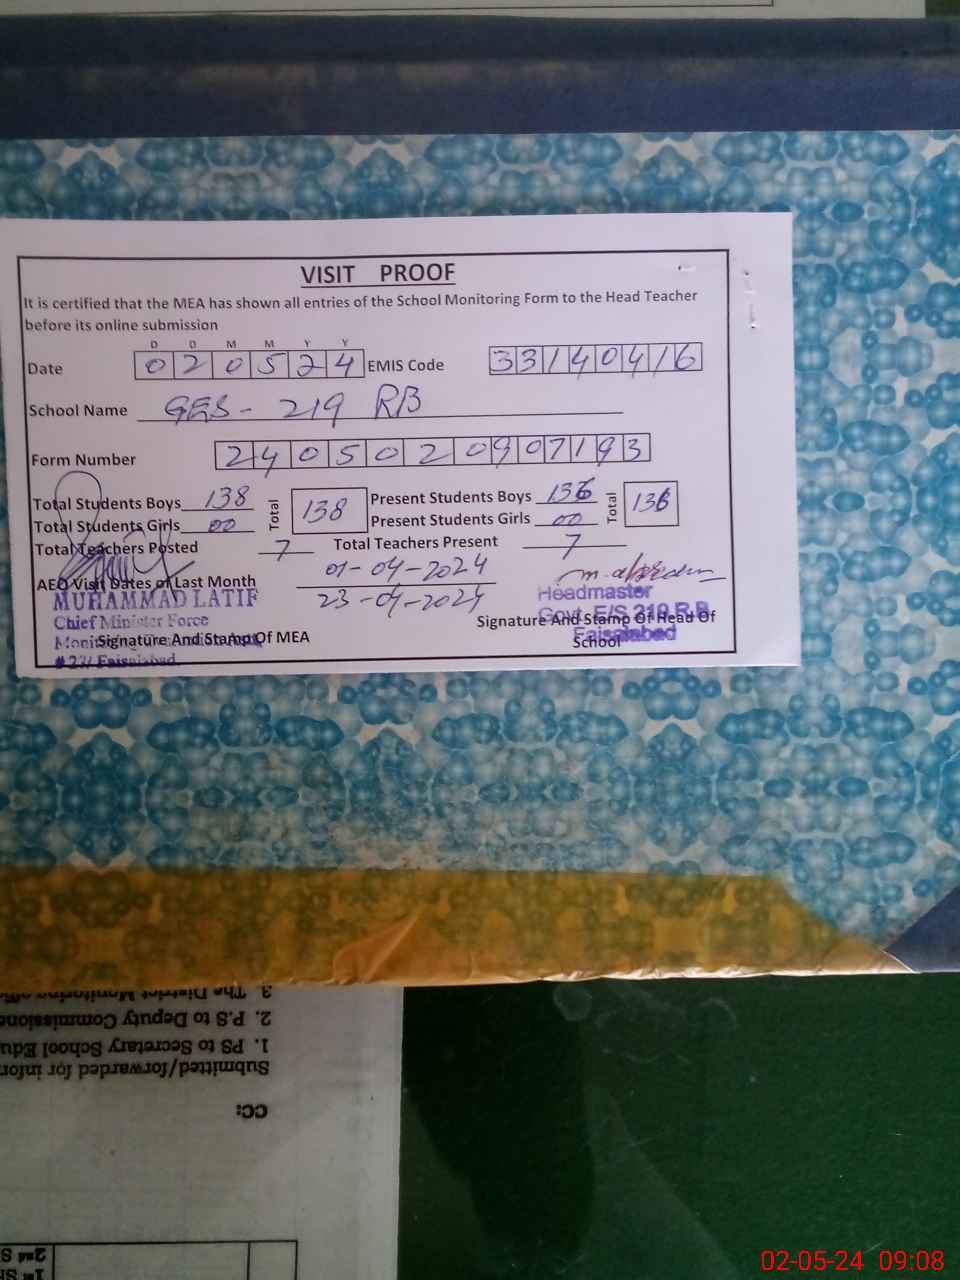 VISIT PROOF
It is certified that the MEA has shown all entries of the School Monitoring Form to the Head Teacher
before its online submission
D D M M Y Y
Date 020524 EMIS Code 33140416
School Name GES - 219 RB
Form Number 2405020907193
Total Students Boys 138 Total 138 Present Students Boys 136 Total 136
Total Students Girls 00 Present Students Girls 00
Total Teachers Posted 7 Total Teachers Present 7
AEO Visit Dates of Last Month 01-04-2024
23-04-2024
MUHAMMAD LATIF
Chief Minister Force
Signature And Stamp Of MEA
Faisalabad.
Headmaster
Govt. E/S 219 R.B
Signature And Stamp Of Head Of
School
Faisalabad
3. The District Monitoring
2. P.S to Deputy
1. PS to Secretary School
Submitted/forwarded for
CC:
2nd S
1st
02-05-24 09:08